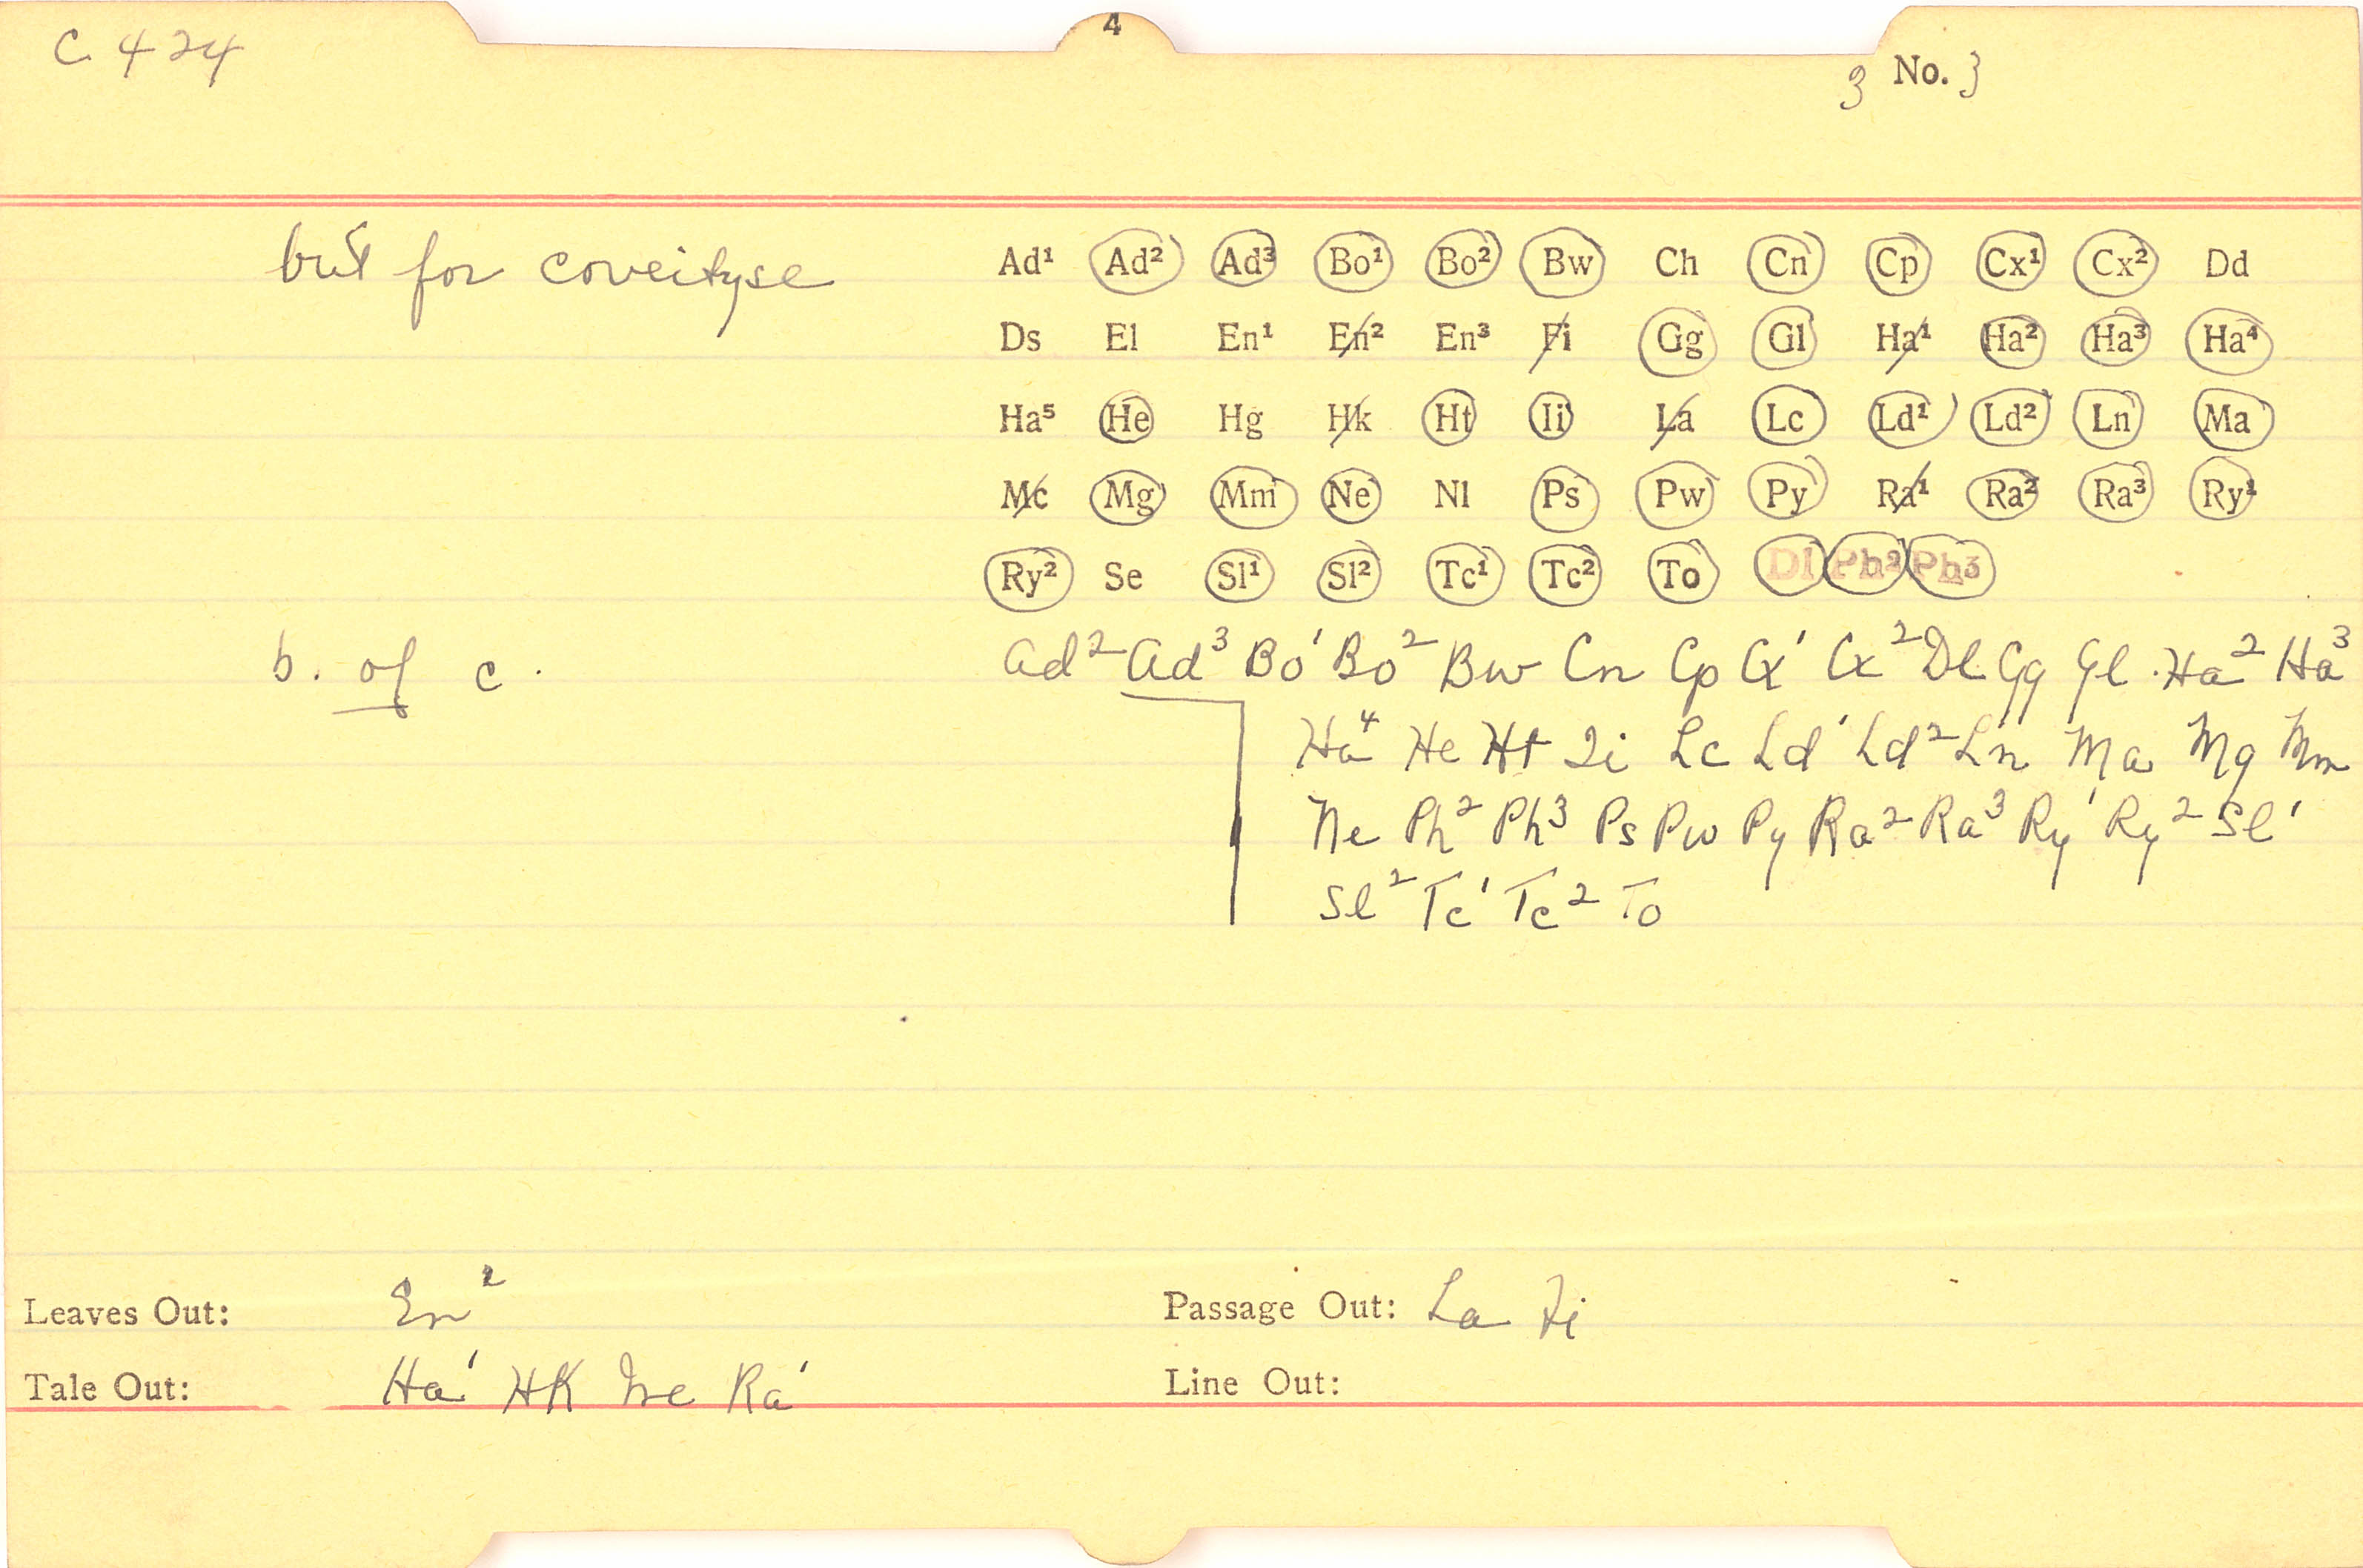 4
C 424
3 No. 3
but for coveityse Ad¹ Ad² Ad³ Bo¹ Bo² Bw Ch Cn Cp Cx¹ Cx² Dd
Ds El En¹ En² En³ Fi Gg Gl Ha¹ Ha² Ha³ Ha⁴
Ha⁵ He Hg Hk Ht Ii La Lc Ld¹ Ld² Ln Ma
Mc Mg Mm Ne Nl Ps Pw Py Ra¹ Ra² Ra³ Ry¹
Ry² Se Sl¹ Sl² Tc¹ Tc² To Dl Ph2 Ph3
b. of c. Ad² Ad³ Bo¹ Bo² Bw Cn Cp Cx¹ Cx² Dl Gg Gl Ha² Ha³
Ha⁴ He Ht Ii Lc Ld¹ Ld² Ln Ma Mg Mm
Ne Ph² Ph³ Ps Pw Py Ra² Ra³ Ry¹ Ry² Sl¹
Sl² Tc¹ Tc² To
Leaves Out: En² Passage Out: La Fi
Tale Out: Ha¹ HK Mc Ra¹ Line Out: